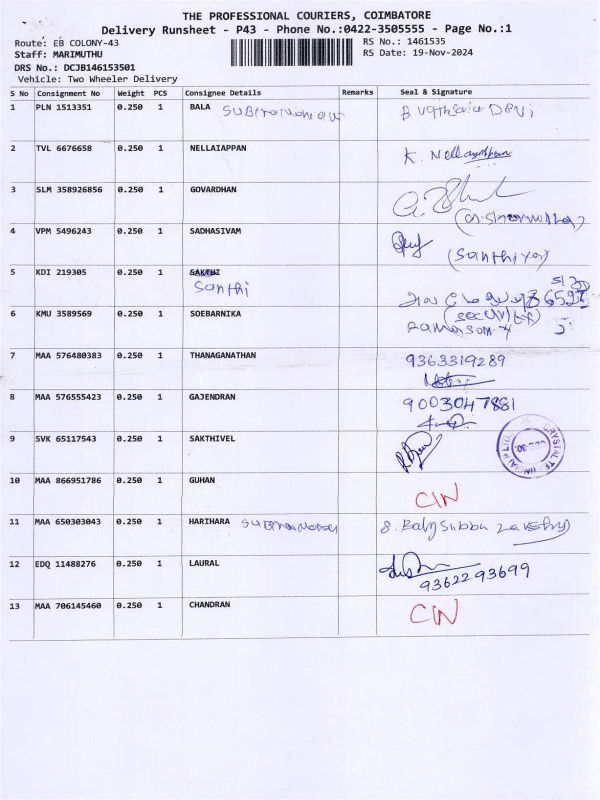 THE PROFESSIONAL COURIERS, COIMBATORE
Delivery Runsheet - P43 - Phone No.:0422-3505555 - Page No.:1
Route: EB COLONY-43 RS No.: 1461535
Staff: MARIMUTHU RS Date: 19-Nov-2024
DRS No.: DCJB146153501
Vehicle: Two Wheeler Delivery
S No Consignment No Weight PCS Consignee Details Remarks Seal & Signature
1 PLN 1513351 0.250 1 BALA
2 TVL 6676658 0.250 1 NELLAIAPPAN K. Nellaiyappan
3 SLM 358926856 0.250 1 GOVARDHAN
4 VPM 5496243 0.250 1 SADHASIVAM
(Santhiya)
5 KDI 219305 0.250 1 SAKTHI
Santhi
6 KMU 3589569 0.250 1 SOEBARNIKA
7 MAA 576480383 0.250 1 THANAGANATHAN 9363319289
8 MAA 576555423 0.250 1 GAJENDRAN 9003047881
9 SVK 65117543 0.250 1 SAKTHIVEL
10 MAA 866951786 0.250 1 GUHAN
CIN
11 MAA 650303043 0.250 1 HARIHARA
12 EDQ 11488276 0.250 1 LAURAL
9362293699
13 MAA 706145460 0.250 1 CHANDRAN CIN